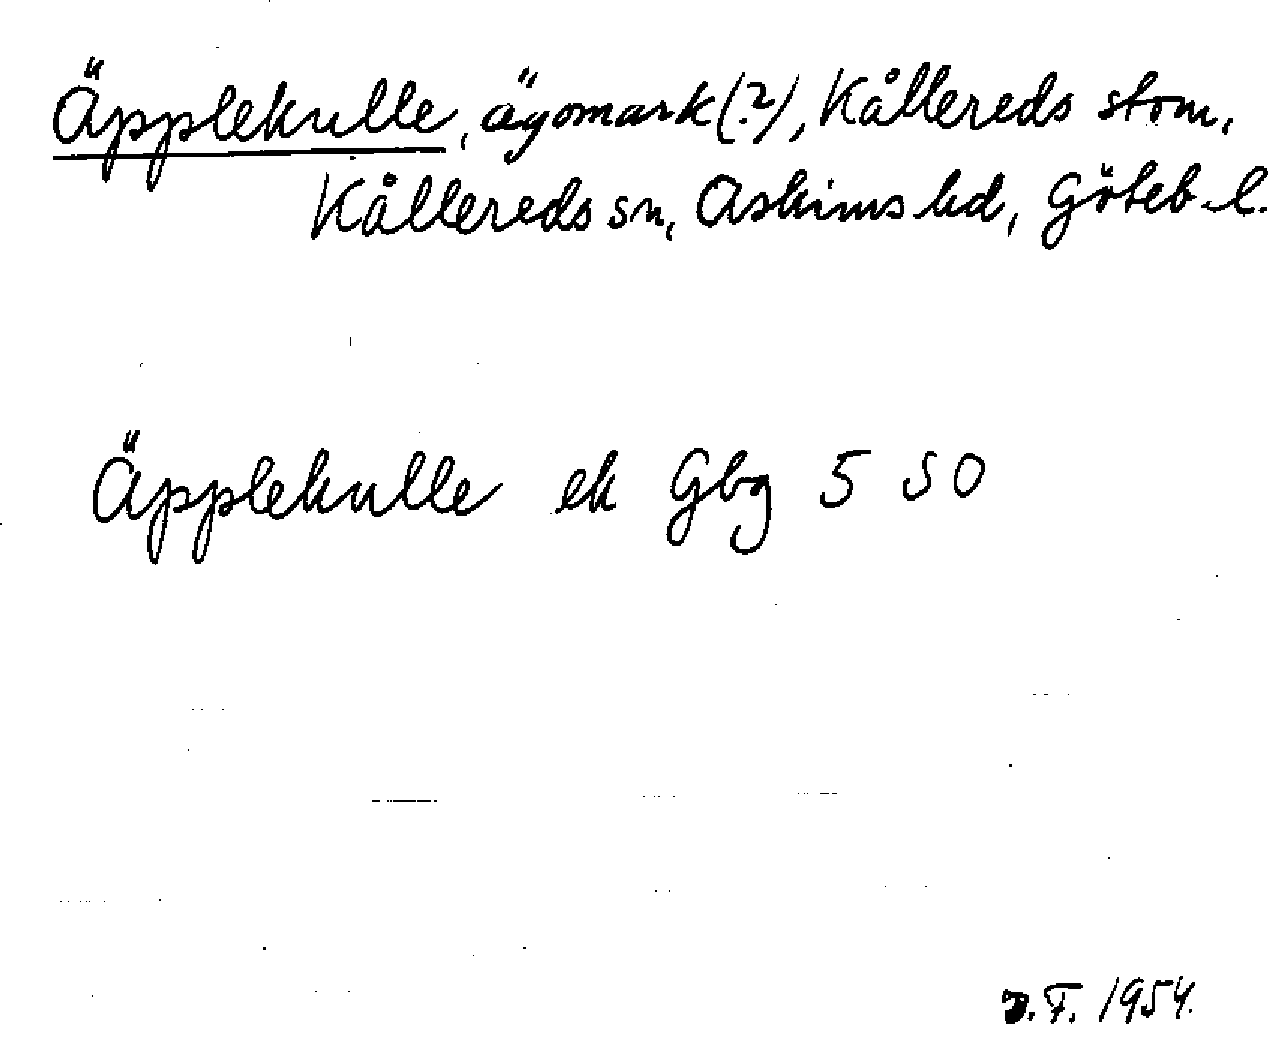 Äpplekulle, ägomark(?), Kållereds stom,
Kållereds sn, Askims hd, Göteb. l.
Äpplekulle ek Gbg 5 SO
F. 1954.